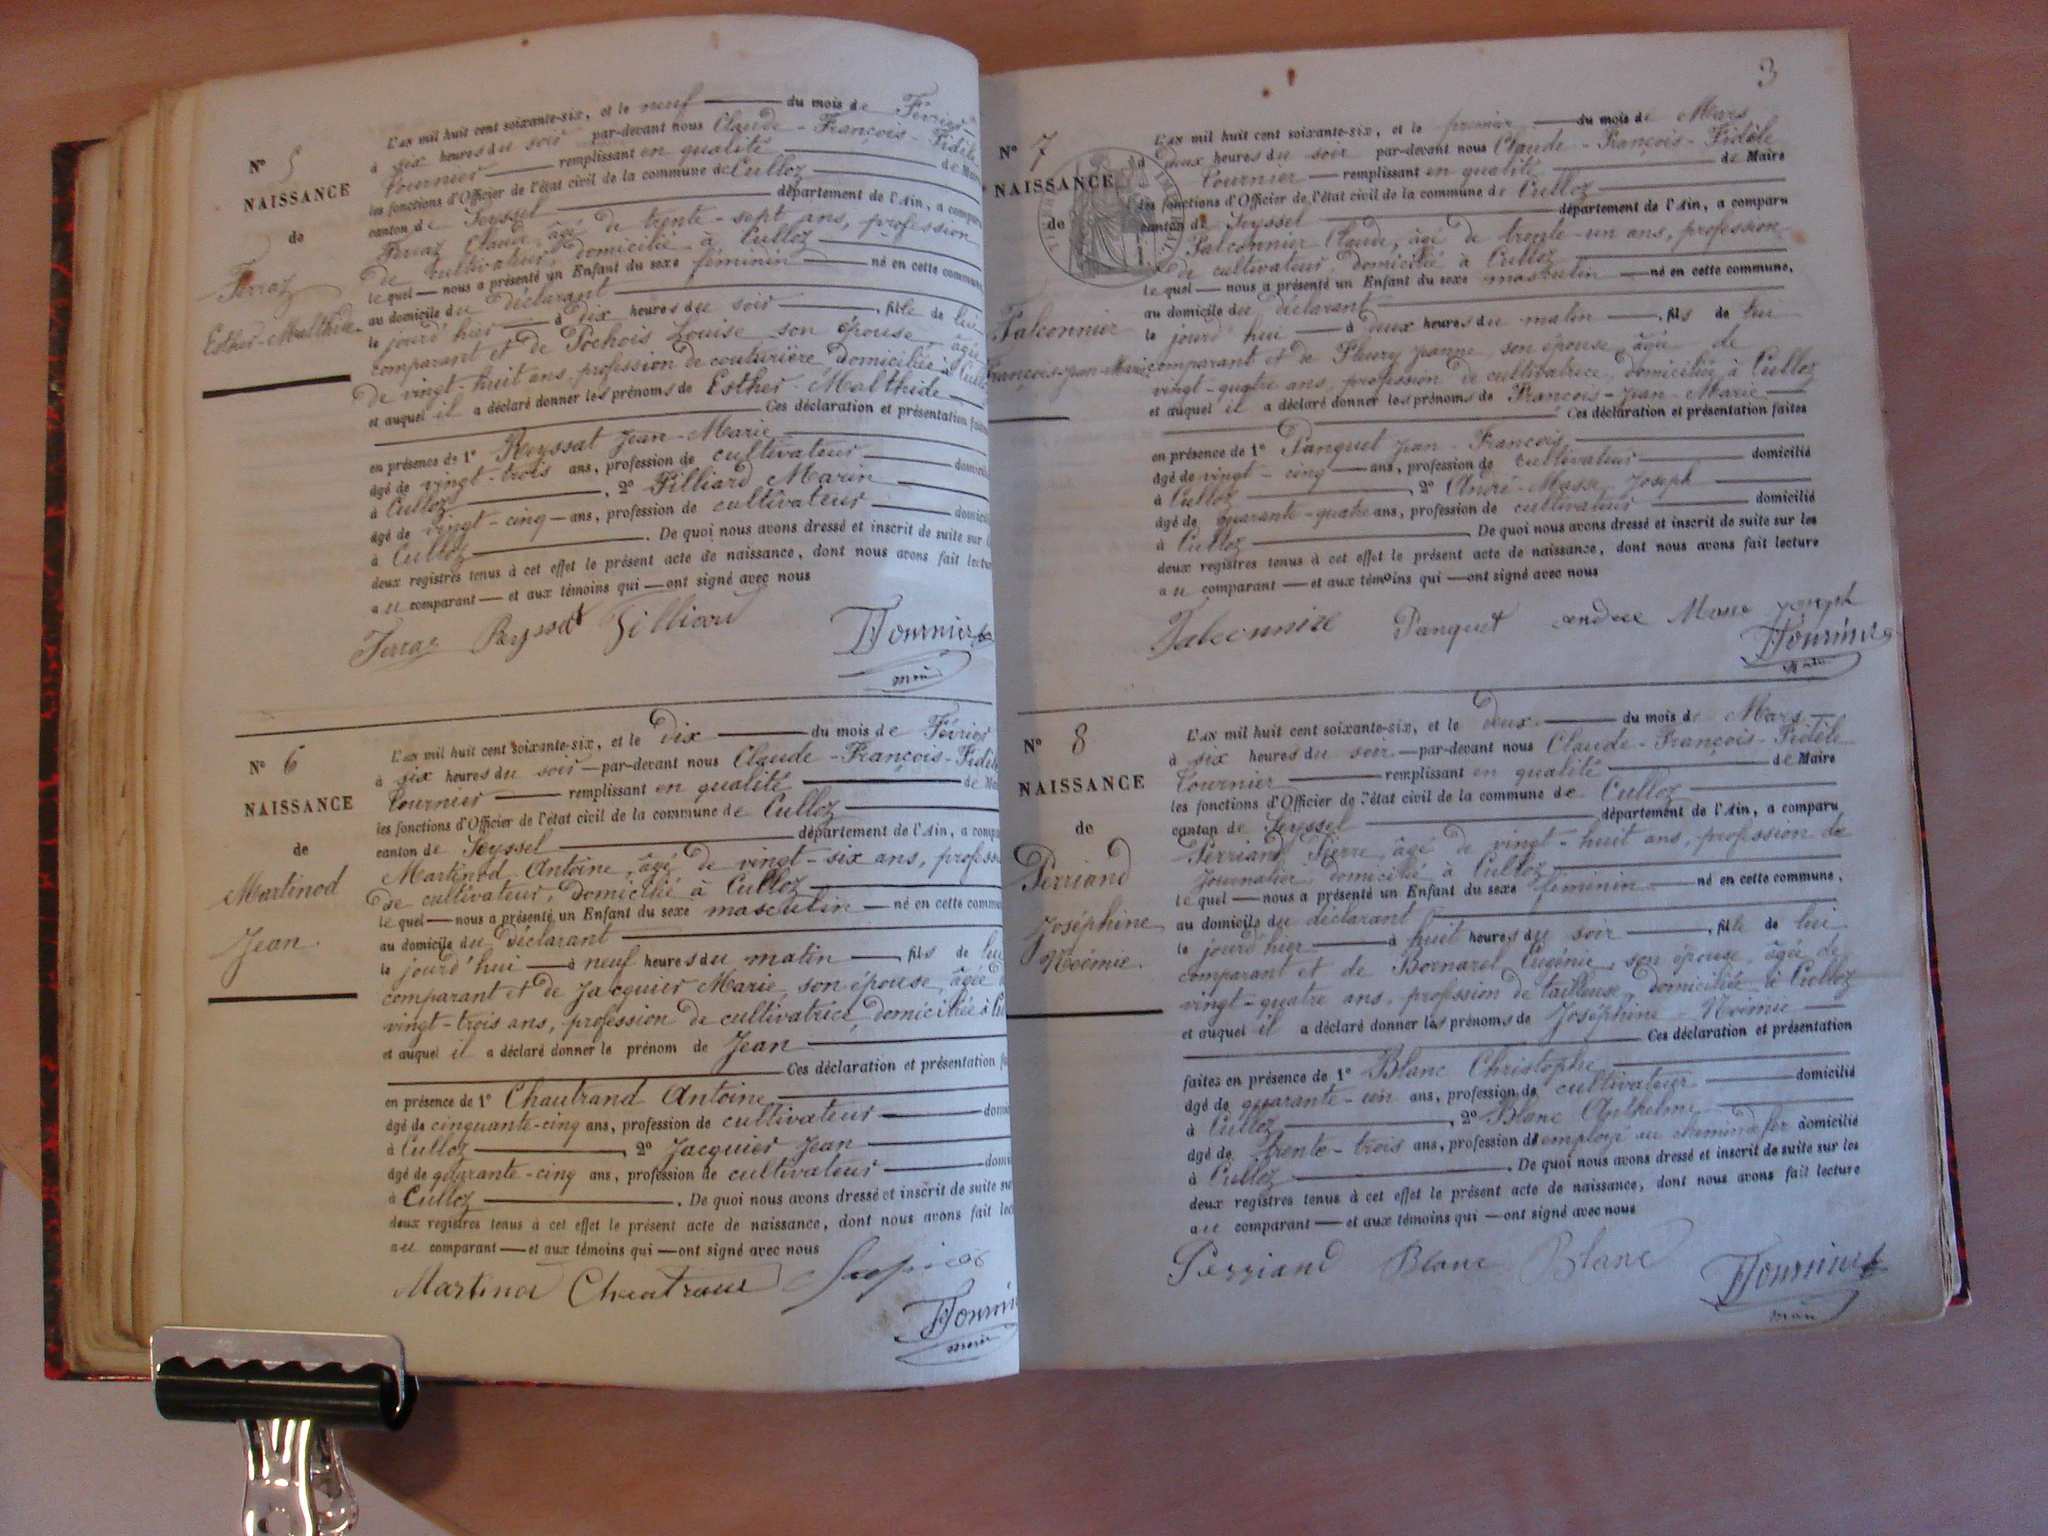 N° 5
NAISSANCE
de
Ferraz
Esther-Malthide
L'an mil huit cent soixante-six, et le neuf du mois de Février
à six heures du soir par-devant nous Claude-François-Fidèle
Fournier remplissant en qualité de Maire
les fonctions d'Officier de l'état civil de la commune de Culloz
canton de Seyssel département de l'Ain, a comparu
Ferraz Claude, âgé de trente-sept ans, profession
de cultivateur, domicilié à Culloz
lequel nous a présenté un Enfant du sexe féminin né en cette commune,
au domicile du déclarant
le jourd'hui à dix heures du soir, fille de lui
comparant et de Pochois Louise son épouse, âgée
de vingt-huit ans, profession de couturière domiciliée à Culloz
et auquel il a déclaré donner les prénoms de Esther-Malthide
Ces déclaration et présentation faites
en présence de 1° Reyssat Jean-Marie
âgé de vingt-trois ans, profession de cultivateur domicilié
à Culloz, 2° Filliard Marin
âgé de vingt-cinq ans, profession de cultivateur domicilié
à Culloz. De quoi nous avons dressé et inscrit de suite sur les
deux registres tenus à cet effet le présent acte de naissance, dont nous avons fait lecture
au comparant et aux témoins qui ont signé avec nous
Ferraz Reyssat Filliard Fournier
N° 6
NAISSANCE
de
Martinod
Jean.
L'an mil huit cent soixante-six, et le dix du mois de Février
à six heures du soir par-devant nous Claude-François-Fidèle
Fournier remplissant en qualité de Maire
les fonctions d'Officier de l'état civil de la commune de Culloz
canton de Seyssel département de l'Ain, a comparu
Martinod Antoine, âgé de vingt-six ans, profession
de cultivateur, domicilié à Culloz
lequel nous a présenté un Enfant du sexe masculin né en cette commune
au domicile du déclarant
le jourd'hui à neuf heures du matin, fils de lui
comparant et de Jacquier Marie, son épouse, âgée de
vingt-trois ans, profession de cultivatrice, domiciliée à Culloz
et auquel il a déclaré donner le prénom de Jean
Ces déclaration et présentation faites
en présence de 1° Chautrand Antoine
âgé de cinquante-cinq ans, profession de cultivateur domicilié
à Culloz, 2° Jacquier Jean
âgé de quarante-cinq ans, profession de cultivateur domicilié
à Culloz. De quoi nous avons dressé et inscrit de suite sur
deux registres tenus à cet effet le présent acte de naissance, dont nous avons fait lecture
au comparant et aux témoins qui ont signé avec nous
Martinod
Fournier
maire
3
N° 7
NAISSANCE
de
Falconnier
François-Jean-Marie
L'an mil huit cent soixante-six, et le premier du mois de Mars
à deux heures du soir par-devant nous Claude-François-Fidèle
Fournier remplissant en qualité de Maire
les fonctions d'Officier de l'état civil de la commune de Culloz
canton de Seyssel département de l'Ain, a comparu
Falconnier Claude, âgé de trente-un ans, profession
de cultivateur, domicilié à Culloz
lequel nous a présenté un Enfant du sexe masculin né en cette commune,
au domicile du déclarant
le jourd'hui à deux heures du matin, fils de lui
comparant et de Fleury Jeanne, son épouse, âgée de
vingt-quatre ans, profession de cultivatrice, domiciliée à Culloz
et auquel il a déclaré donner les prénoms de François-Jean-Marie
Ces déclaration et présentation faites
en présence de 1° Panquet Jean-François
âgé de vingt-cinq ans, profession de cultivateur domicilié
à Culloz, 2° André-Masse Joseph
âgé de quarante-quatre ans, profession de cultivateur domicilié
à Culloz. De quoi nous avons dressé et inscrit de suite sur les
deux registres tenus à cet effet le présent acte de naissance, dont nous avons fait lecture
au comparant et aux témoins qui ont signé avec nous
Falconnier Panquet andree Masse Joseph
Fournier
N° 8
NAISSANCE
de
Perriand
Joséphine
Noémie.
L'an mil huit cent soixante-six, et le deux du mois de Mars
à six heures du soir par-devant nous Claude-François-Fidèle
Fournier remplissant en qualité de Maire
les fonctions d'Officier de l'état civil de la commune de Culloz
canton de Seyssel département de l'Ain, a comparu
Perriand Pierre, âgé de vingt-huit ans, profession de
journalier, domicilié à Culloz
lequel nous a présenté un Enfant du sexe féminin né en cette commune,
au domicile du déclarant
le jourd'hier à huit heures du soir, fille de lui
comparant et de Bornarel Eugénie, son épouse, âgée de
vingt-quatre ans, profession de tailleuse, domiciliée à Culloz
et auquel il a déclaré donner les prénoms de Joséphine-Noémie
Ces déclaration et présentation
faites en présence de 1° Blanc Christophe
âgé de quarante-un ans, profession de cultivateur domicilié
à Culloz, 2° Blanc Anthelme
âgé de trente-trois ans, profession d'employé au chemin de fer domicilié
à Culloz. De quoi nous avons dressé et inscrit de suite sur les
deux registres tenus à cet effet le présent acte de naissance, dont nous avons fait lecture
au comparant et aux témoins qui ont signé avec nous
Perriand Blanc Blanc Fournier